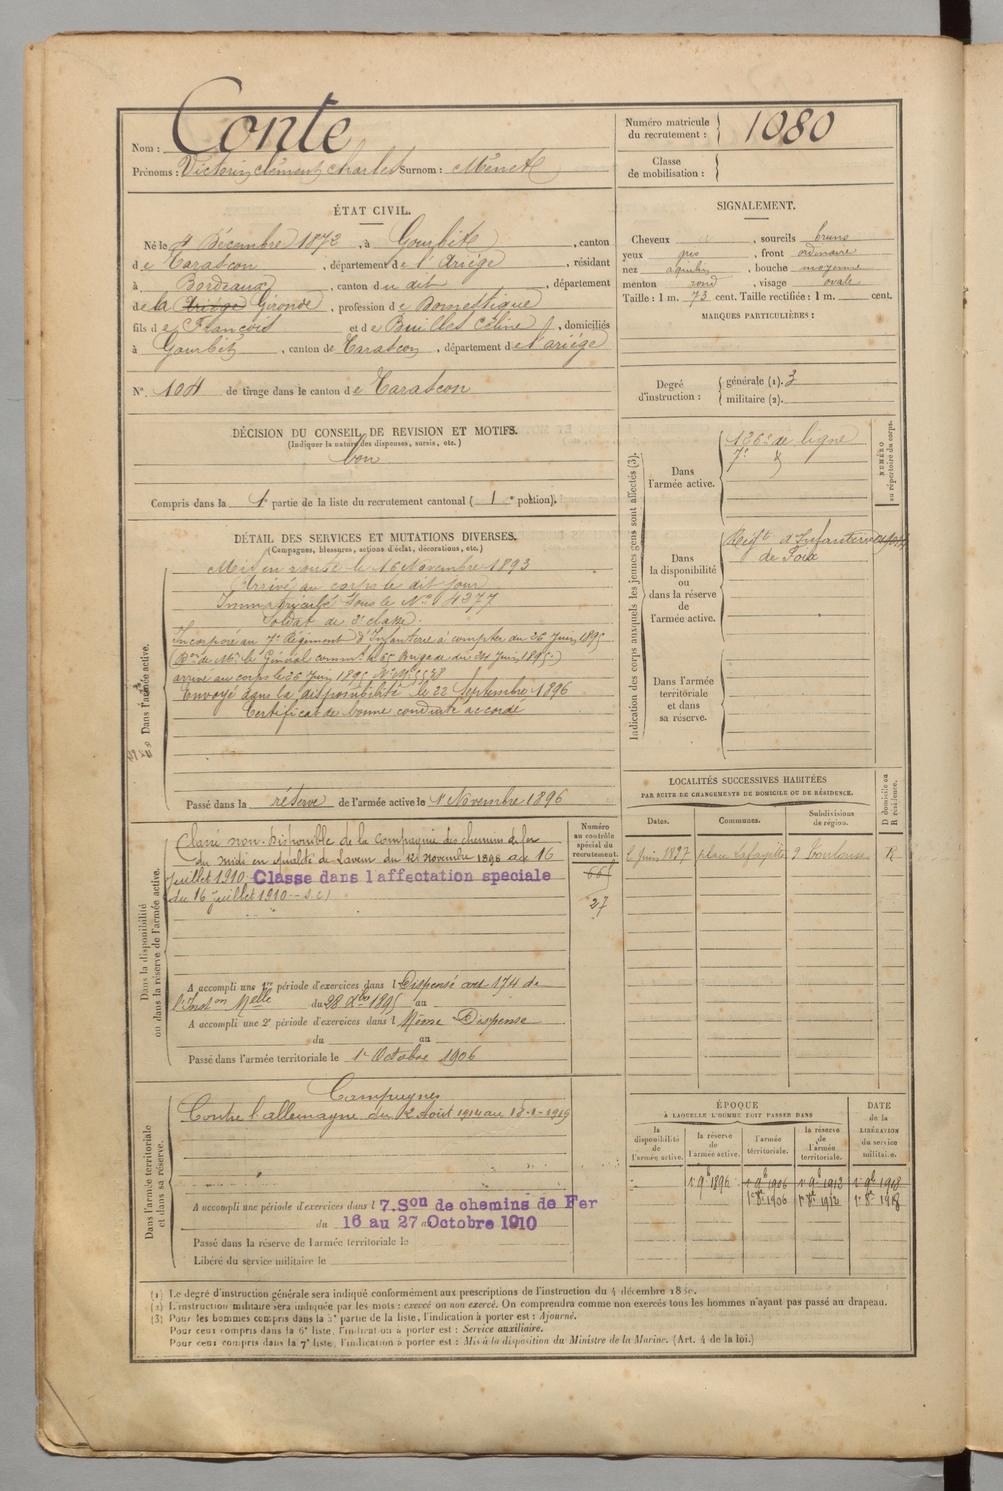 Nom : Conte
Prénoms : Victorin Clément Charles Surnom : Ménet
Numéro matricule
du recrutement : 1080
Classe
de mobilisation :
ÉTAT CIVIL.
Né le 4 Décembre 1873, à Gourbit, canton
de Tarascon, département de l'Ariège, résidant
à Bordeaux, canton du dit, département
de la Ariège Gironde, profession de Domestique
fils de François et de Builles Céline, domiciliés
à Gourbit, canton de Tarascon, département de l'ariège
N° 104 de tirage dans le canton de Tarascon
SIGNALEMENT.
Cheveux , sourcils bruns
yeux gris, front ordinaire
nez aquilin, bouche moyenne
menton rond, visage ovale
Taille : 1 m. 73 cent. Taille rectifiée : 1 m. cent.
MARQUES PARTICULIÈRES :
Degré
d'instruction :
générale (1). 3
militaire (2).
DÉCISION DU CONSEIL DE REVISION ET MOTIFS.
(Indiquer la nature des dispenses, sursis, etc.)
bon
Compris dans la 1e partie de la liste du recrutement cantonal ( 1 e portion).
DÉTAIL DES SERVICES ET MUTATIONS DIVERSES.
(Campagnes, blessures, actions d'éclat, décorations, etc.)
Dans l'armée active.
Mis en route le 16 Novembre 1893
Arrivé au corps le dit jour
Immatriculé sous le N° 4377
Soldat de 2e classe.
Incorporé au 7e Régiment d'Infanterie à compter du 26 Juin 1895
(Don de Mr le Général commt la 65 Brigade du 24 Juin 1895)
arrivé au corps le 26 Juin 1895 N°
Envoyé dans la disponibilité le 22 Septembre 1896
Certificat de bonne conduite accordé
Passé dans la réserve de l'armée active le 1 Novembre 1896
Indication des corps auxquels les jeunes gens sont affectés (3).
NUMÉRO
au répertoire du corps.
Dans
l'armée active.
126e de ligne
7e
Dans
la disponibilité
ou
dans la réserve
de
l'armée active.
Regt d'Infanterie
de Foix
Dans l'armée
territoriale
et dans
sa réserve.
Dans la disponibilité
ou dans la réserve de l'armée active.
Numéro
au contrôle
spécial du
recrutement.
Classé non-Disponible de la Compagnie des chemins de fer
du midi en qualité de Laveur du 12 novembre 1898 au 16
juillet 1910 Classe dans l'affectation speciale
du 16 juillet 1910 - s.c)
27
A accompli une 1re période d'exercices dans l Dispensé art 174 de
l'Inston Melle du 28 Xbre 1895 au
A accompli une 2e période d'exercices dans l Même Dispense
du au
Passé dans l'armée territoriale le 1er Octobre 1906
LOCALITÉS SUCCESSIVES HABITÉES
PAR SUITE DE CHANGEMENTS DE DOMICILE OU DE RÉSIDENCE.
D domicile ou
R résidence.
Dates. Communes. Subdivisions
de région.
Juin 1897 place Lafayette 9 Toulouse R
Dans l'armée territoriale
et dans sa réserve.
Campagnes
Contre l'allemagne du 2 Août 1914 au 18-1-1919
A accompli une période d'exercices dans l 7.Son de chemins de Fer
du 16 au 27 Octobre 1910
Passé dans la réserve de l'armée territoriale le
Libéré du service militaire le
ÉPOQUE
À LAQUELLE L'HOMME DOIT PASSER DANS
la
disponibilité
de
l'armée active.
la réserve
de
l'armée active.
l'armée
territoriale.
la réserve
de
l'armée
territoriale.
DATE
de la
LIBÉRATION
du service
militaire.
1r 9b 1896 1r 9b 1906 1r 9b 1912 1r 9b 1918
1r 8bre 1906 1r 8bre 1912 1r 8bre 1918
(1) Le degré d'instruction générale sera indiqué conformément aux prescriptions de l'instruction du 4 décembre 1889.
(2) L'instruction militaire sera indiquée par les mots : exercé ou non exercé. On comprendra comme non exercés tous les hommes n'ayant pas passé au drapeau.
(3) Pour les hommes compris dans la 5e partie de la liste, l'indication à porter est : Ajourné.
Pour ceux compris dans la 6e liste, l'indication à porter est : Service auxiliaire.
Pour ceux compris dans la 7e liste, l'indication à porter est : Mis à la disposition du Ministre de la Marine. (Art. 4 de la loi.)